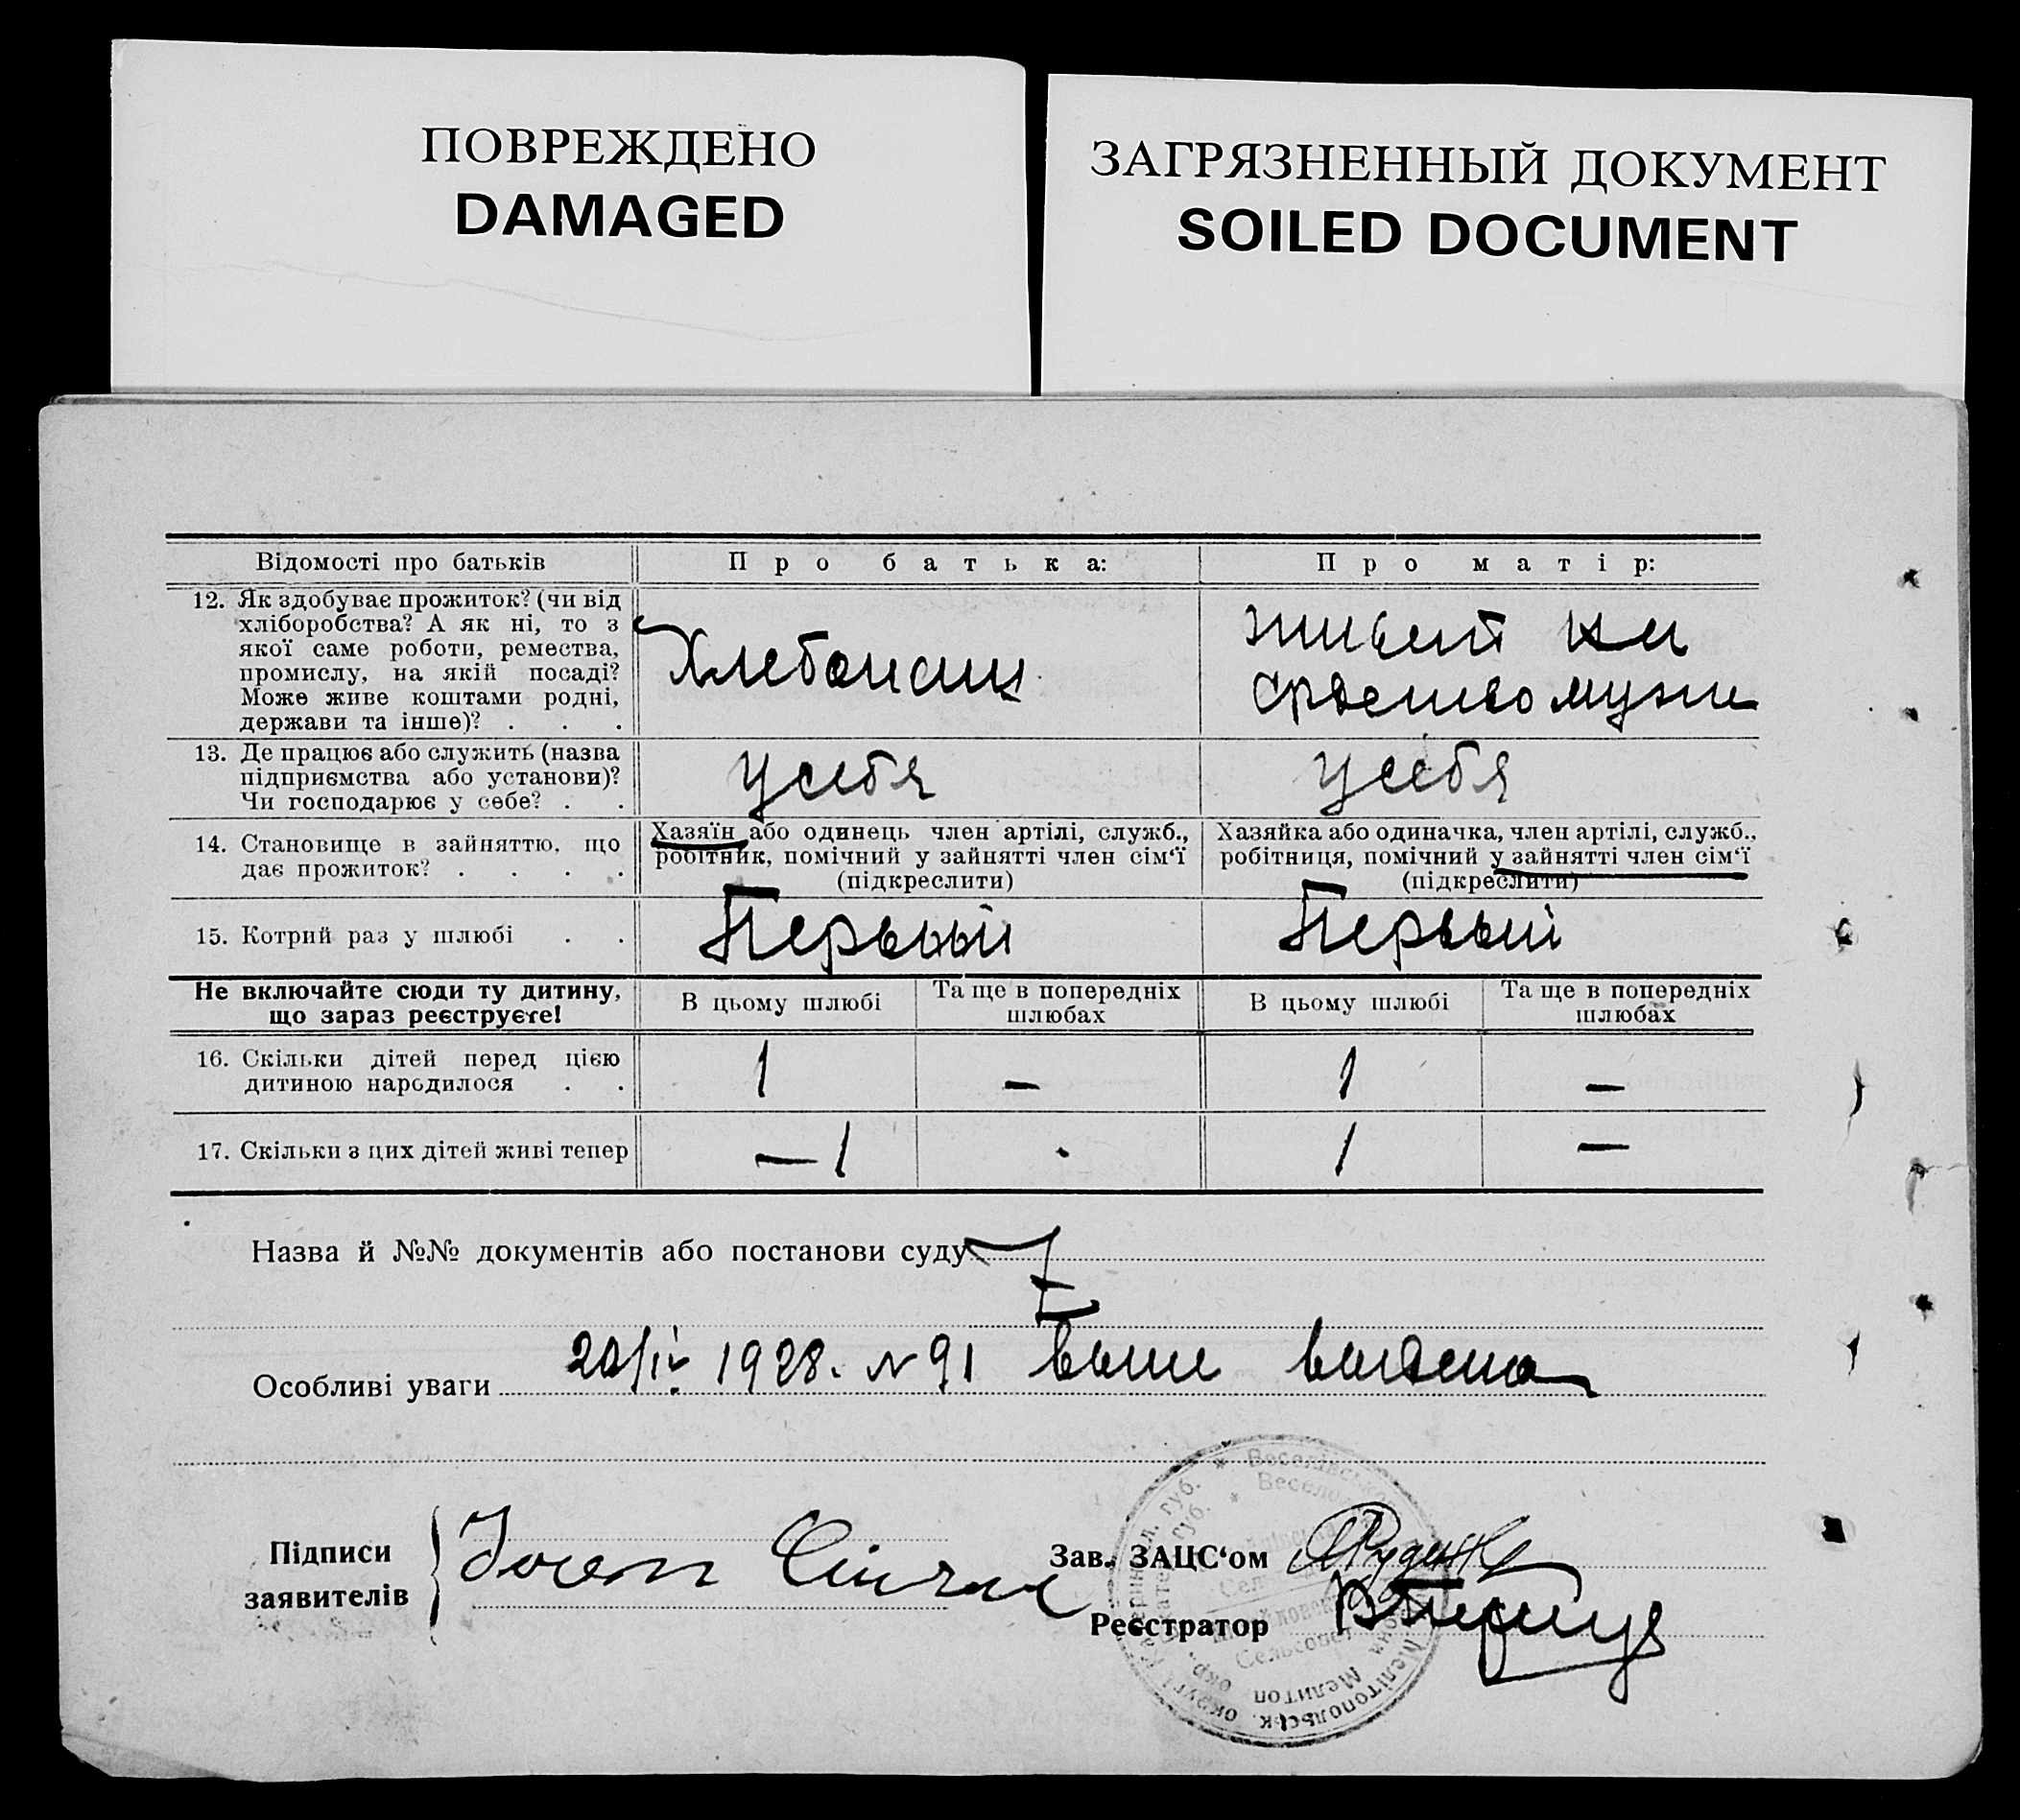 ПОВРЕЖДЕНО
DAMAGED
ЗАГРЯЗНЕННЫЙ ДОКУМЕНТ
SOILED DOCUMENT
Відомості про батьків
Про батька:
Про матір:
12. Як здобуває прожиток? (чи від
хліборобства? А як ні, то з
якої саме роботи, ремества,
промислу, на якій посаді?
Може живе коштами родні,
держави та інше)? . . .
Хлебопашец
живет на
средство мужа
13. Де працює або служить (назва
підприємства або установи)?
Чи господарює у себе? . .
у себя
у себя
14. Становище в зайняттю, що
дає прожиток? . . . .
Хазяїн або одинець член артілі, служб.,
робітник, помічний у зайнятті член сім‘ї
(підкреслити)
Хазяйка або одиначка, член артілі, служб.,
робітниця, помічний у зайнятті член сім‘ї
(підкреслити)
15. Котрий раз у шлюбі . .
Первый
Первый
Не включайте сюди ту дитину,
що зараз реєструєте!
В цьому шлюбі
Та ще в попередніх
шлюбах
В цьому шлюбі
Та ще в попередніх
шлюбах
16. Скільки дітей перед цією
дитиною народилося . .
1
—
1
—
17. Скільки з цих дітей живі тепер
— 1
1
—
Назва й №№ документів або постанови суду
Особливі уваги
20/IV 1928. N 91
Підписи
заявителів
Зав. ЗАЦС‘ом
Реєстратор
Сельсовет
Мелітопольськ. округ
Мелитоп окр.